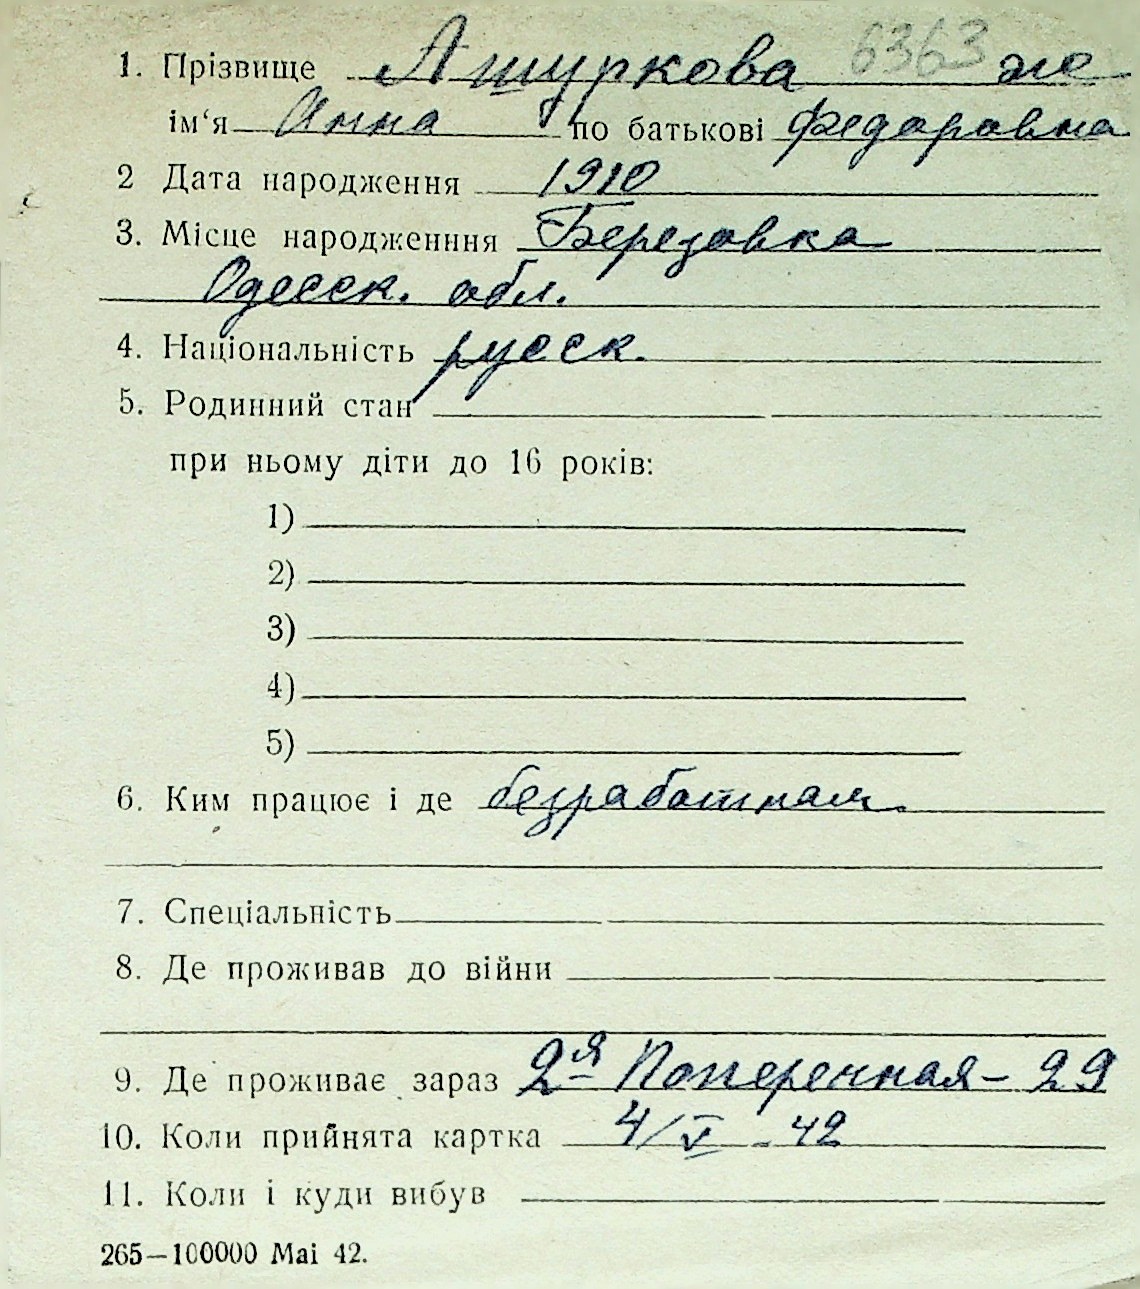 1. Прізвище Ашуркова 6363 же
ім‘я Анна по батькові Федоровна
2 Дата народження 1910
3. Місце народженння Березовка
Одесск. обл.
4. Національність русск.
5. Родинний стан
при ньому діти до 16 років:
1)
2)
3)
4)
5)
6. Ким працює і де безработная
7. Спеціальність
8. Де проживав до війни
9. Де проживає зараз 2ая Поперечная - 29
10. Коли прийнята картка 4/V - 42
11. Коли і куди вибув
265—100000 Маі 42.